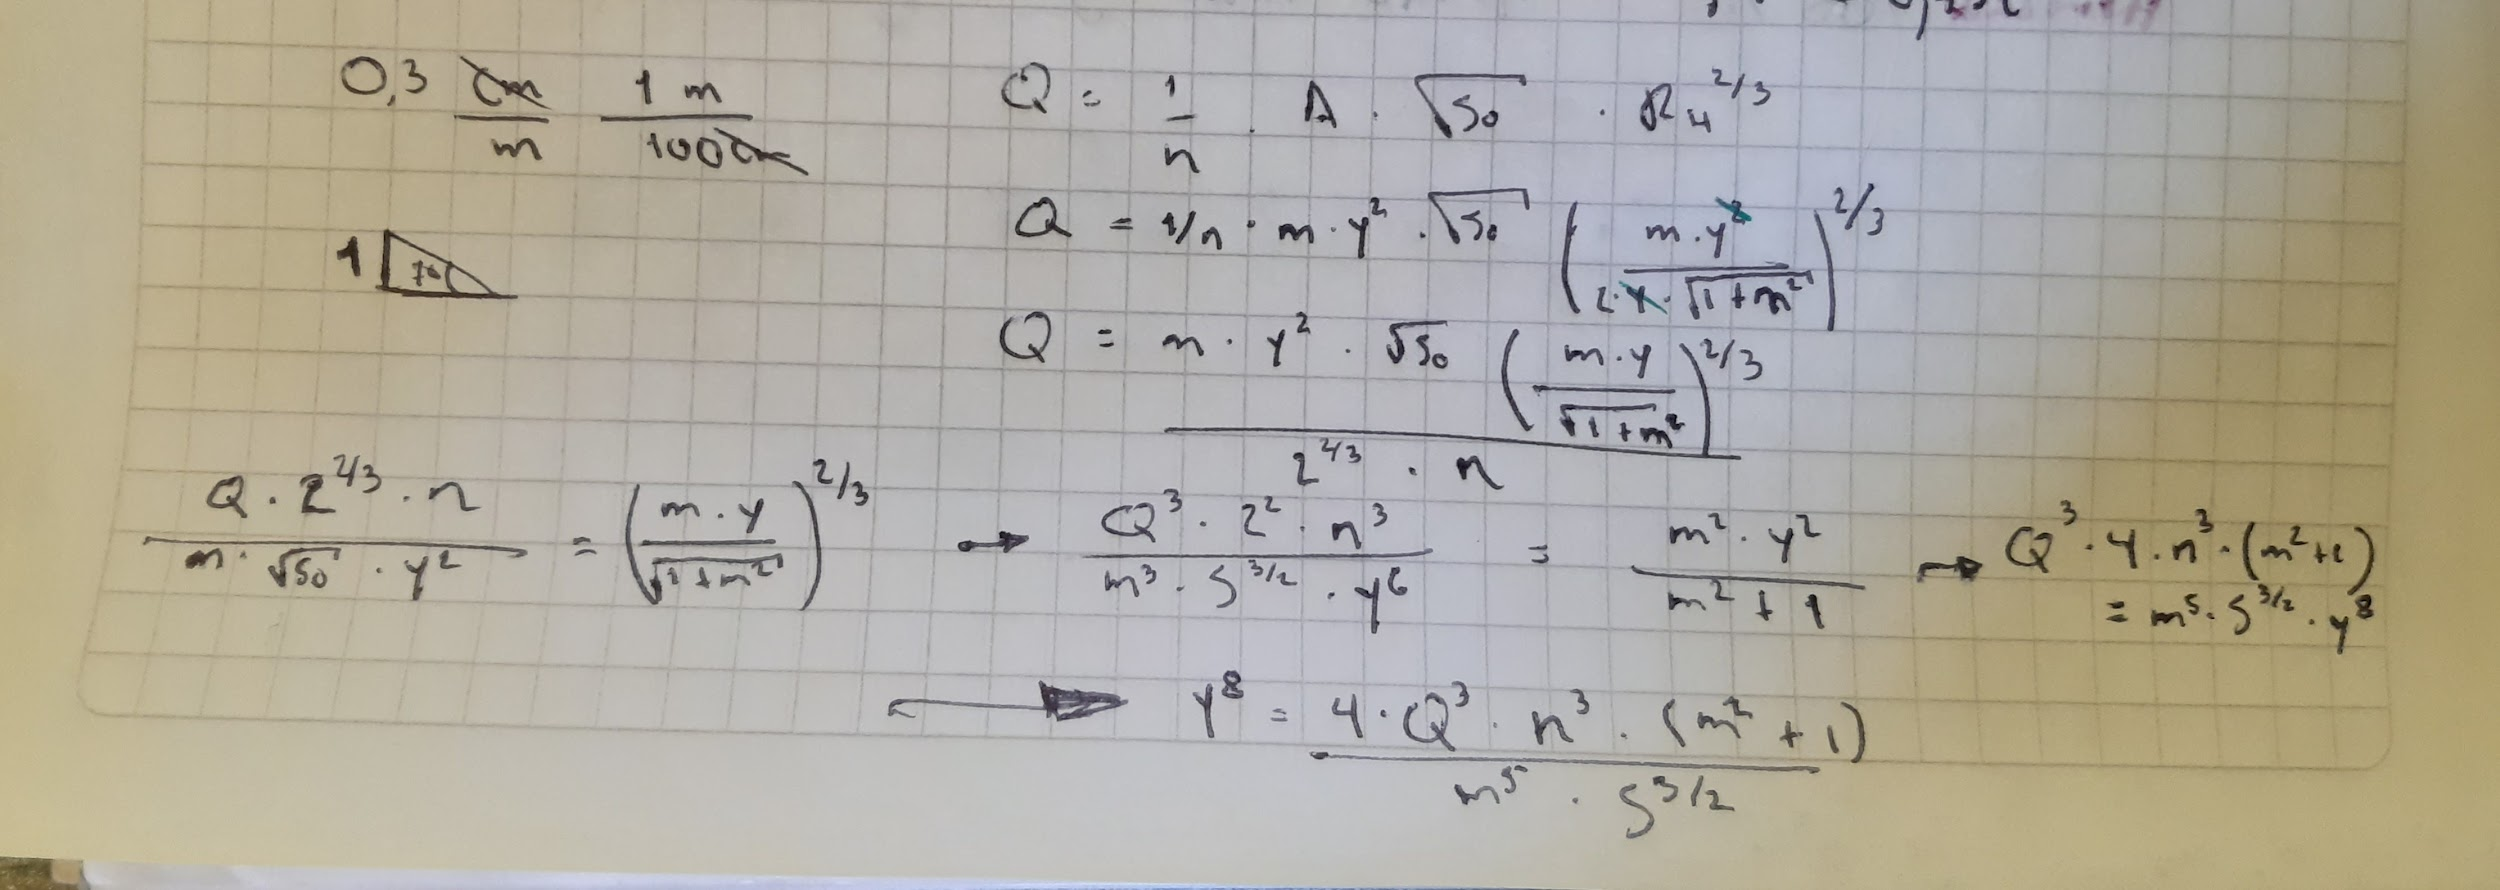 0,3 cm/m 1 m/100cm
Q = 1/n · A · √S₀ · R_H^2/3
1
Q = 1/n · m · y² · √S₀ (m · y²/2 · y · √1+m²)^2/3
Q = m · y² · √S₀ (m · y/√1+m²)^2/3 / 2^2/3 · n
Q · 2^2/3 · n / m · √S₀ · y² = (m · y/√1+m²)^2/3 → Q³ · 2² · n³ / m³ · S^3/2 · y⁶ = m² · y² / m² + 1 → Q³ · 4 · n³ · (m²+1)
= m⁵ · S^3/2 · y⁸
→ y⁸ = 4 · Q³ · n³ · (m² + 1) / m⁵ · S^3/2